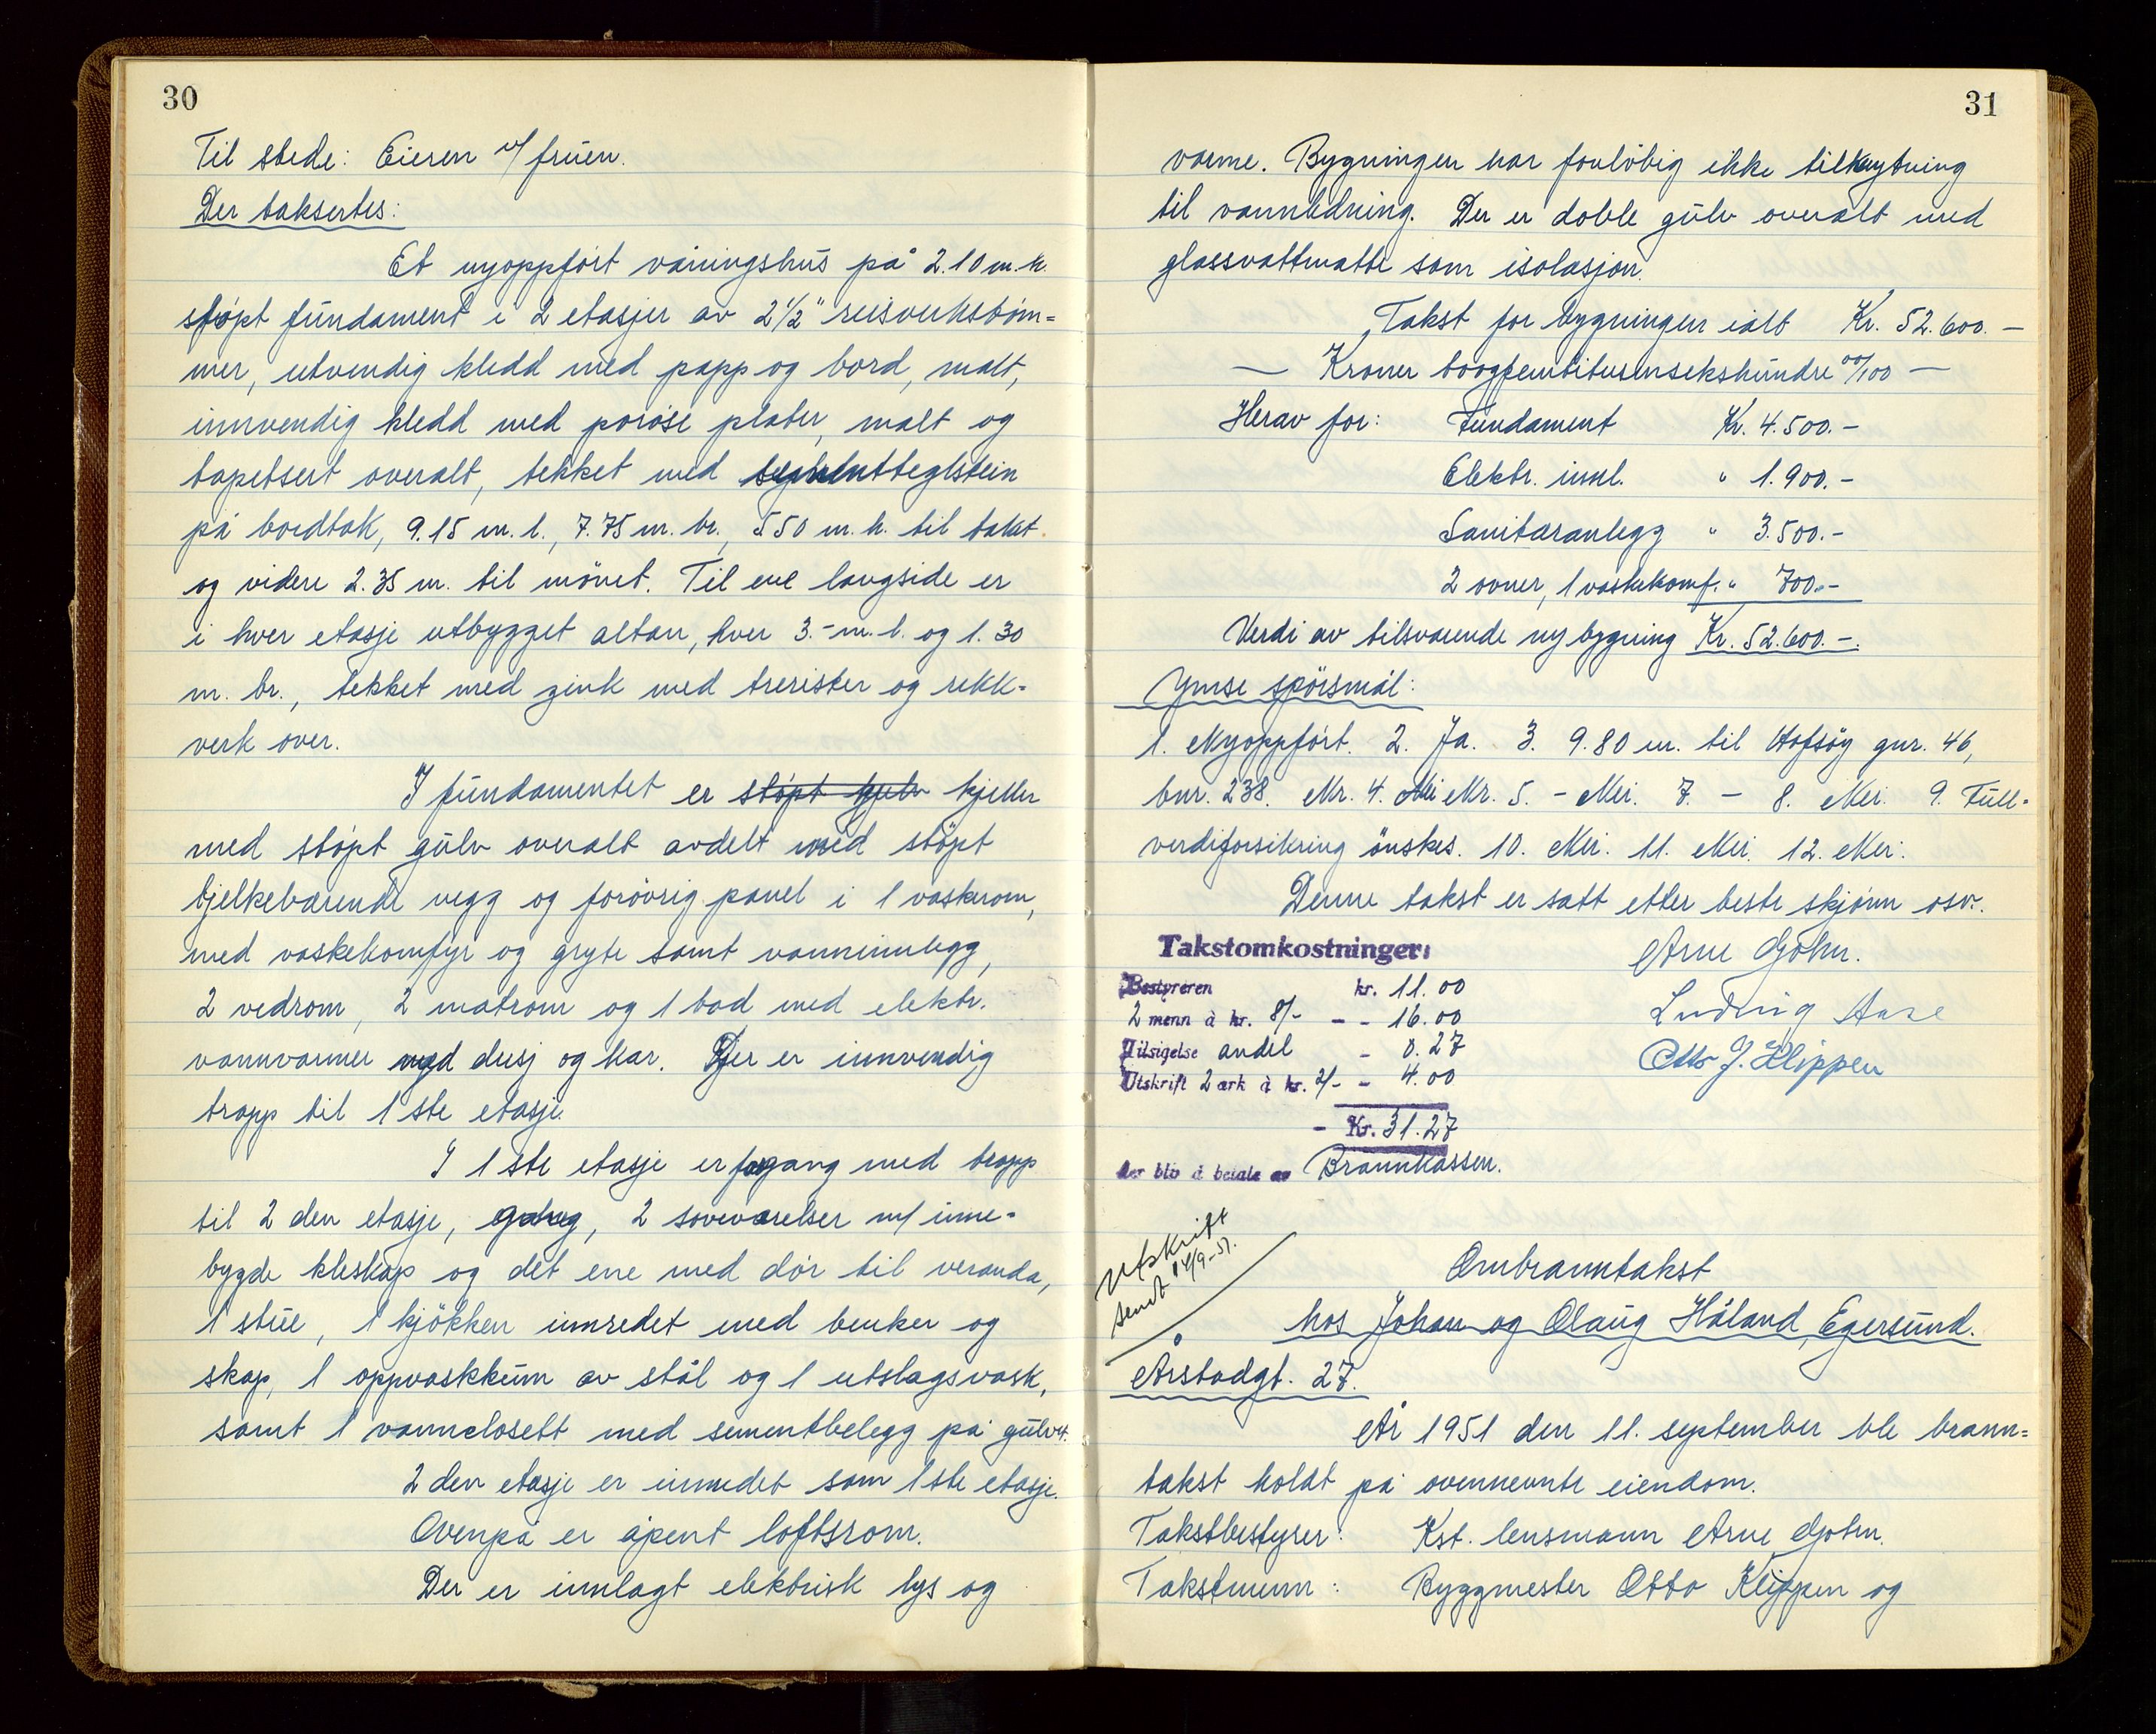 30
Til stede: Eieren v/ fruen.
Der taksertes:
Et nyoppført våningshus på 2.10 m.h.
støpt fundament i 2 etasjer av 2 1/2" reisverkstöm=
mer, utvendig kledd med papp og bord, malt,
innvendig kledd med porøse plater, malt og
tapetsert overalt, tekket med sementteglstein
på bordtak, 9.15 m.l., 7.75 m. br., 5.50 m.h. til taket
og videre 2.35 m. til mønet. Til ene langside er
i hver etasje utbygget altan, hver 3.- m.l. og 1.30
m. br., tekket med zink med trerister og rekk-
verk over.
I fundamentet er støpt gulv kjeller
med støpt gulv overalt avdelt med støpt
bjelkebærende vegg og forøvrig panel i 1 vaskerom,
med vaskekomfyr og gryte samt vanninnlegg,
2 vedrom, 2 matrom og 1 bad med elektr.
vannvarmer med dusj og kar. Der er innvendig
trapp til 1 ste etasje.
I 1 ste etasje er forgang med trapp
til 2 den etasje, gang, 2 soveværelser m/ inne-
bygde kleskap og det ene med dör til veranda,
1 stue, 1 kjökken innredet med benker og
skap, 1 oppvaskkum av stål og 1 utslagsvask,
samt 1 vannclosett med sementbelegg på gulvet.
2 den etasje er innredet som 1 ste etasje.
Ovenpå er åpent loftsrom.
Der er innlagt elektrisk lys og
31
varme. Bygningen har forløbig ikke tilknytning
til vannledning. Der er doble gulv overalt med
glassvattmatte som isolasjon.
Takst for bygningen ialt Kr. 52.600.—
— Kroner toogfemtitusensekshundre 00/100 —
Herav for: Fundament Kr. 4.500.-
Elektr. innl. " 1.900.-
Sanitæranlegg " 3.500.-
2 ovner, 1 vaskekomf. " 700.-
Verdi av tilsvarende ny bygning Kr. 52.600.-.
Ymse spörsmål:
1. Nyoppfört. 2. Ja. 3. 9.80 m. til Hofsøy gnr. 46,
bnr. 238. Nr. 4. Nei Nr. 5. - Nei. 7. - 8. Nei. 9. Full-
verdiforsikring önskes. 10. Nei. 11. Nei. 12. Nei.
Denne takst er satt etter beste skjønn osv.
Takstomkostninger:
Bestyreren kr. 11.00
2 menn à kr. 8/- - - 16.00
Tilsigelse andel - 0.27
Utskrift 2 ark à kr. 2/- - 4.00
- Kr. 31.27
der blir å betale av Brannkassen.
Arne Gohn.
Ludvig Aase
Otto J. Klippen
Utskrift
sendt 14/9-51.
Ombranntakst
hos Johan og Olaug Håland, Egersund.
Årstadgt. 27.
År 1951 den 11. september ble brann=
takst holdt på ovennevnte eiendom.
Takstbestyrer: Kst. lensmann Arne Gohn.
Takstmenn: Byggmester Otto Klippen og